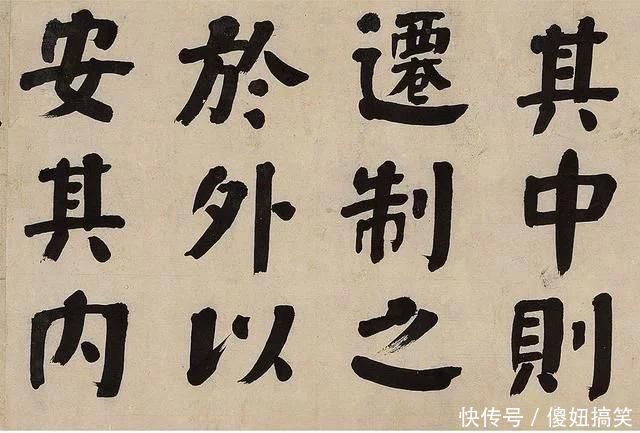 其中則
遷制之
於外以
安其内
快传号/傻妞搞笑